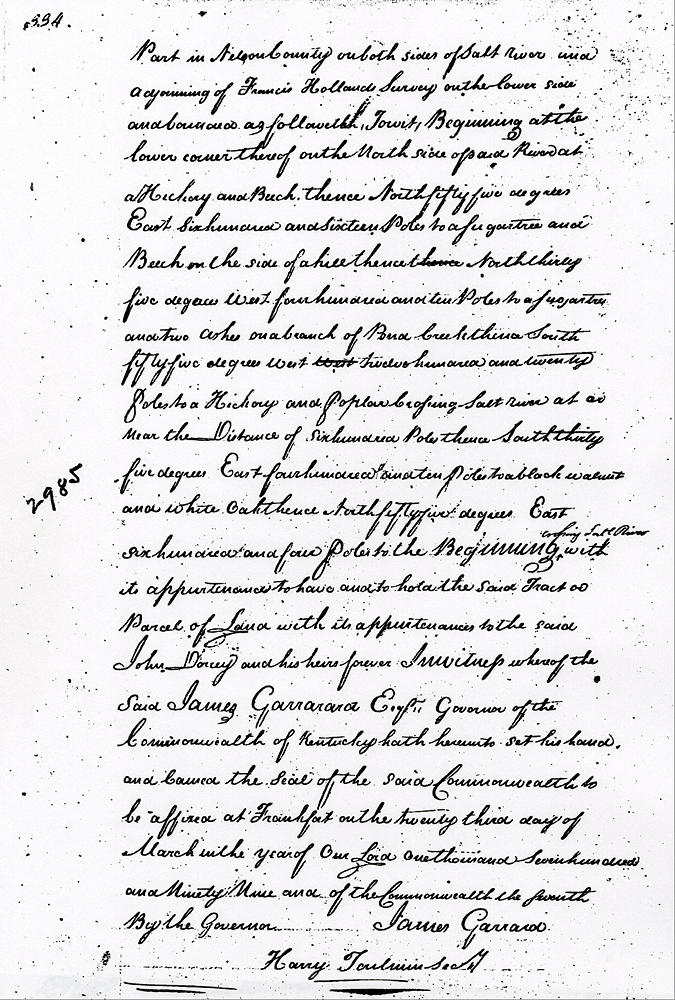 334.
Part in Nelson County on both sides of Salt River and
adjoining of Francis Hollands Survey on the lower side
and bounded as followeth, Towit, Beginning at the
lower corner thereof on the North side of said River at
a Hickory and Beech. thence North fifty five degrees
East Six hundred and Sixteen Poles to a sugartree and
Beech on the side of a hill thence thence North thirty
five degrees West four hundred and ten Poles to a sugartree
and two ashes on a branch of Pond Creek thence South
fifty five degrees West West twelve hundred and twenty
Poles to a Hickory and Poplar Crossing Salt river at or
near the Distance of six hundred Poles thence South thirty
five degrees East four hundred and ten Poles to a black walnut
and white Oak thence North fifty five degrees East
crossing Salt River
six hundred and four Poles to the Beginning, with
its appurtenances to have and to hold the said Tract or
Parcel of Land with its appurtenances to the said
John Dorcey and his heirs forever In witness whereof the
said James Garrarard Esqr. Governor of the
Commonwealth of Kentucky hath hereunto set his hand.
and Caused the seal of the said Commonwealth to
be affixed at Frankfort on the twenty third day of
March in the year of Our Lord One thousand Seven hundred
and Ninety Nine and of the Commonwealth the Seventh
By the Governor James Garrard
Harry Toulmin Secy
2985